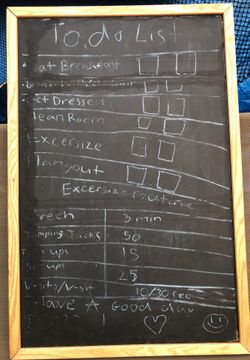 To.do List
Eat Breakfast
Get Dressed
Clean Room
Excersize
Hangout
Excersize routine
3 min
Jumping Jacks 50
15
25
V-sits/V-sit 10/30 sec
Have A Good day